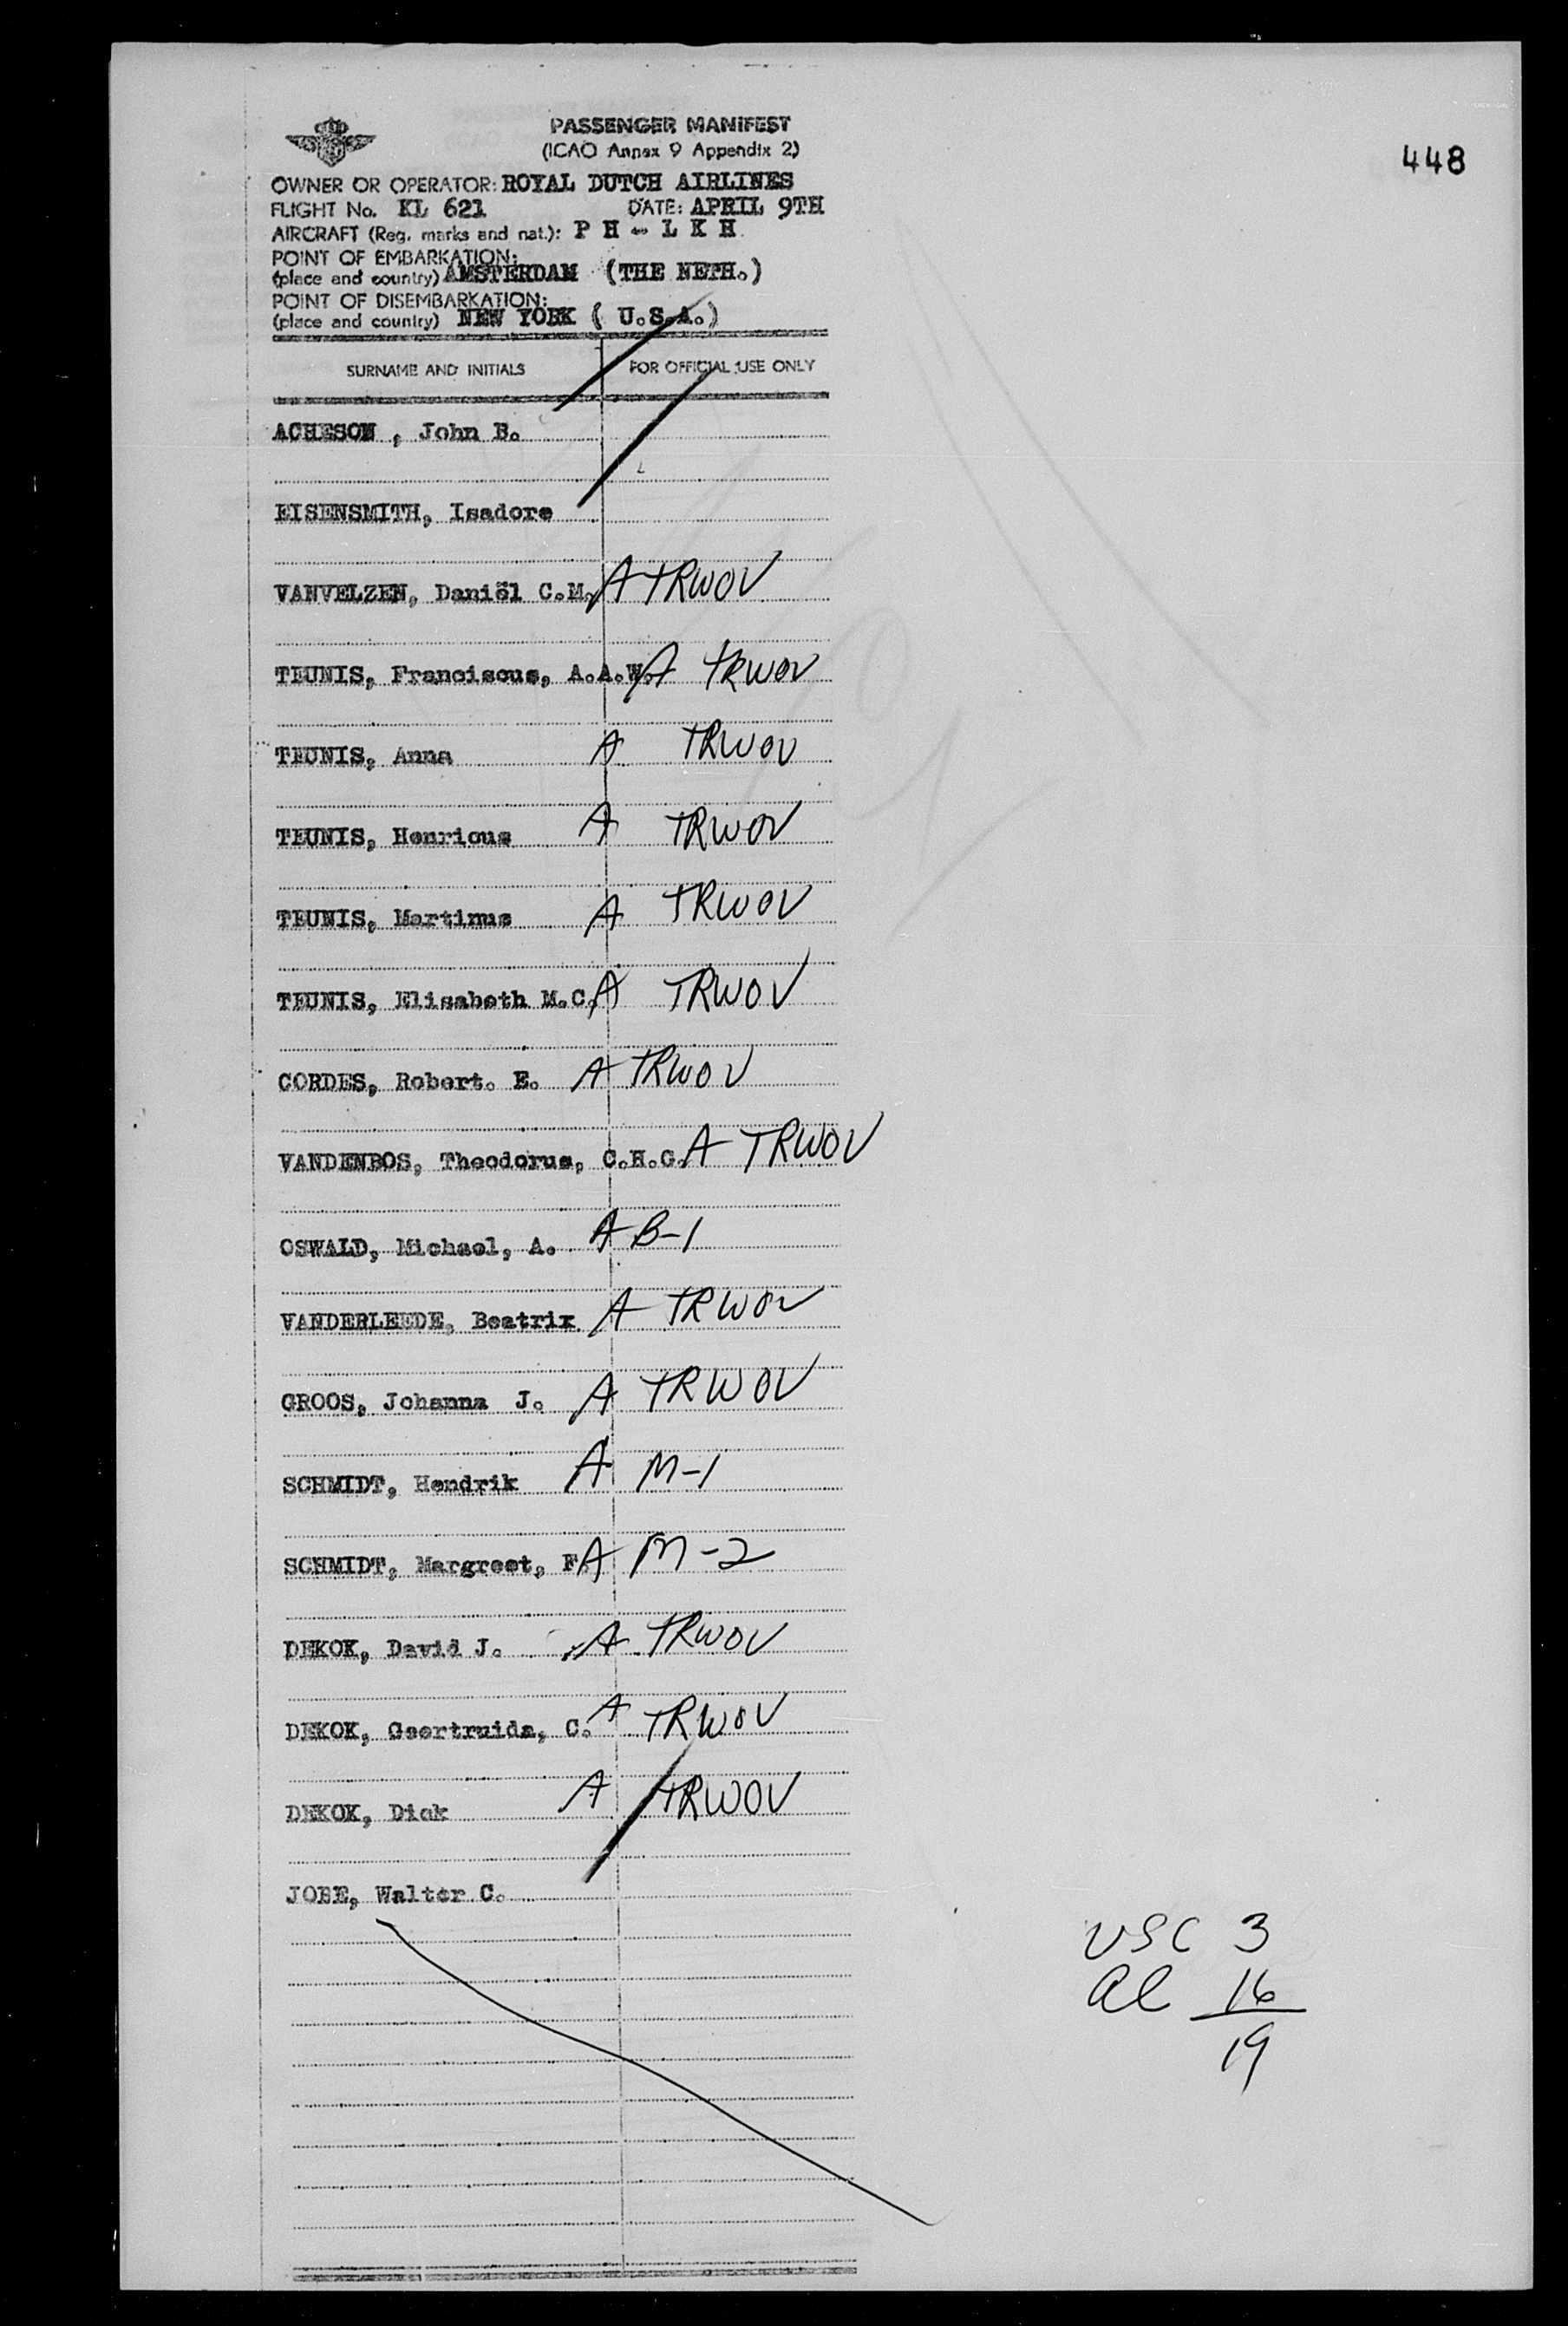 448
PASSENGER MANIFEST
(ICAO Annex 9 Appendix 2)
OWNER OR OPERATOR: ROYAL DUTCH AIRLINES
FLIGHT No. KL 621 DATE: APRIL 9TH
AIRCRAFT (Reg. marks and nat.): P H - L K H
POINT OF EMBARKATION:
(place and country) AMSTERDAM (THE NETH.)
POINT OF DISEMBARKATION:
(place and country) NEW YORK ( U.S.A.)
SURNAME AND INITIALS FOR OFFICIAL USE ONLY
ACHESON , John B.
EISENSMITH, Isadore
VANVELZEN, Daniël C.M. A TRWOV
TEUNIS, Franciscus, A.A.W. A TRWOV
TEUNIS, Anna A TRWOV
TEUNIS, Henricus A TRWOV
TEUNIS, Martinus A TRWOV
TEUNIS, Elisabeth M.C. A TRWOV
CORDES, Robert. E. A TRWOV
VANDENBOS, Theodorus, C.H.G. A TRWOV
OSWALD, Michael, A. A B-1
VANDERLEEDE, Beatrix A TRWOV
GROOS, Johanna J. A TRWOV
SCHMIDT, Hendrik A M-1
SCHMIDT, Margreet, F. A M-2
DEKOK, David J. A TRWOV
DEKOK, Geertruida, C. A TRWOV
DEKOK, Dick A TRWOV
JOBE, Walter C.
USC 3
Al 16
19